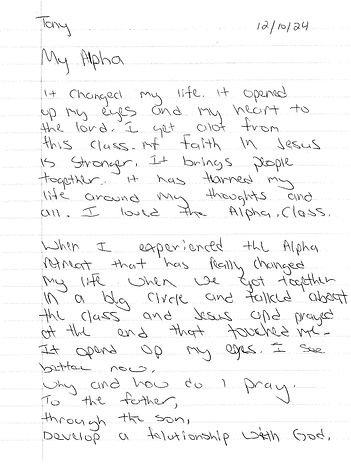 Tony 12/10/24
My Alpha
it changed my life. it opened
up my eyes and my heart to
the lord. I get alot from
this class. my faith in Jesus
is stronger. It brings people
together. it has turned my
life around my thoughts and
all. I loved the Alpha. Class.
When I experienced the Alpha
retreat that has Really changed
my life when we got together
in a big circle and talked about
the class and Jesus and prayed
at the end that touched me.
It opend up my eyes. I see
better now.
why and how do I pray.
To the father,
through the son,
develop a relutionship with God.